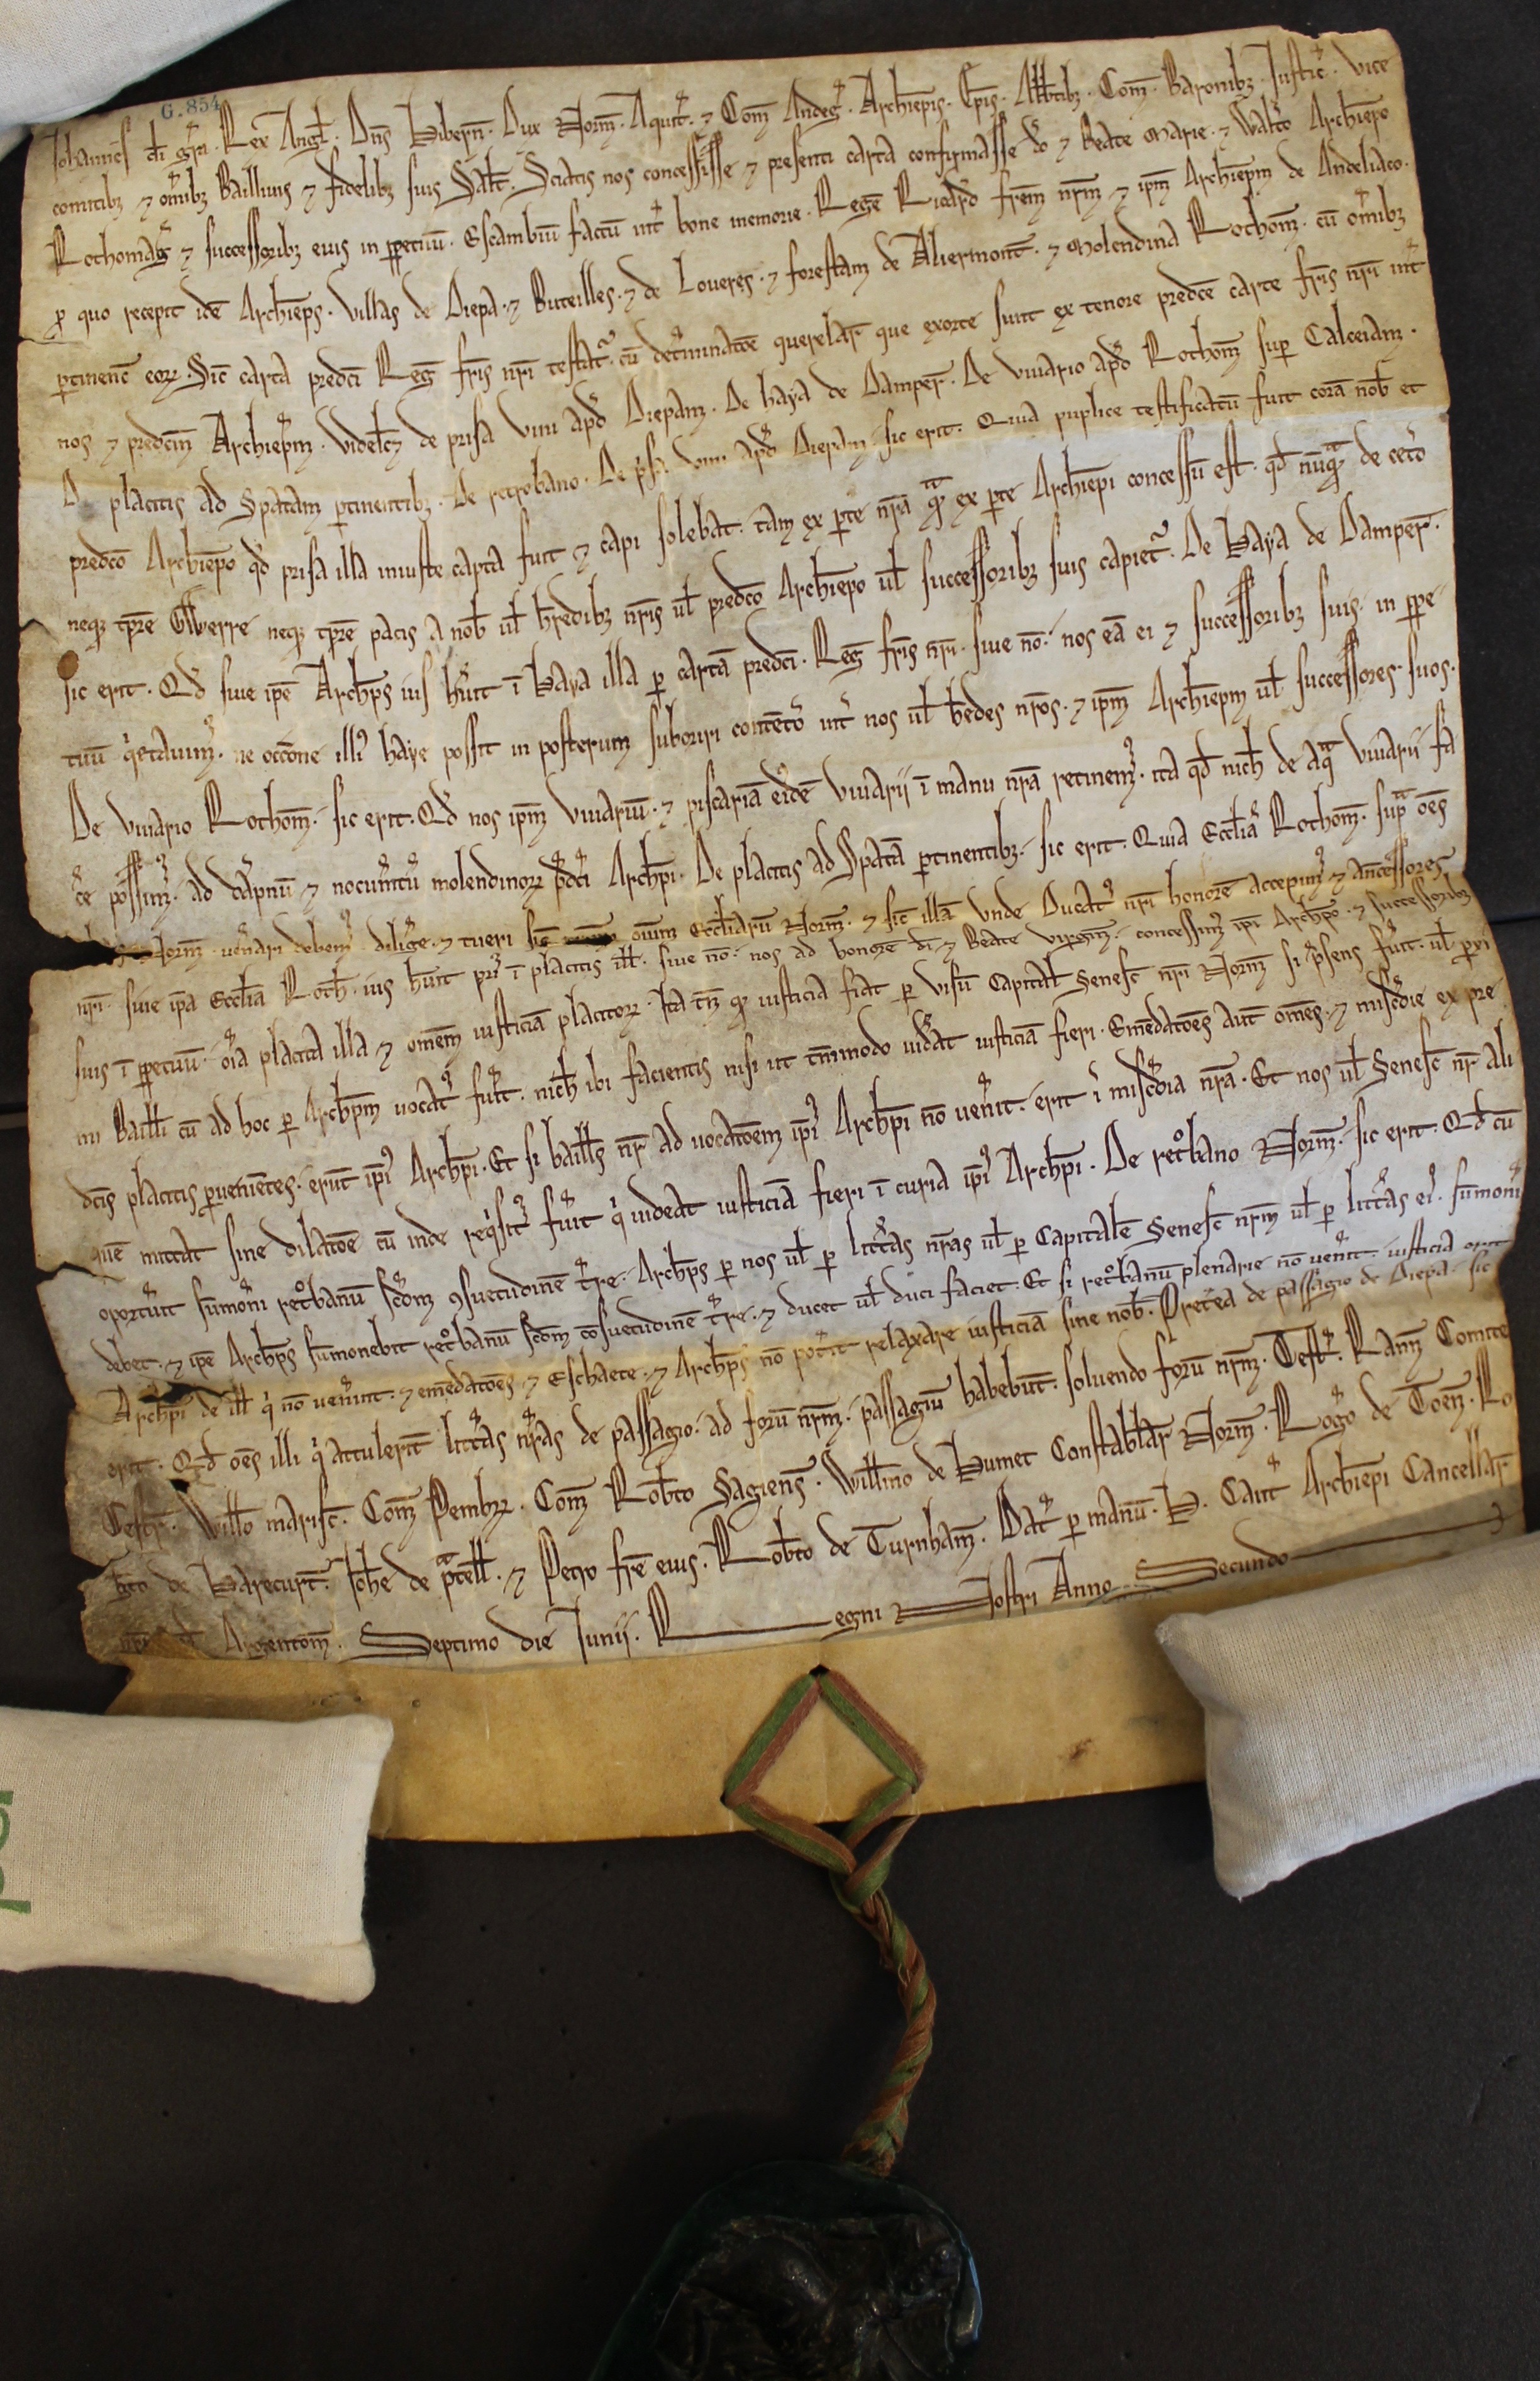 G. 854
Johannes di gra. Rex Angl. Dns Hibern. Dux Norm. Aquit. ⁊ Com Andeg. Archiepis. Epis. Abbtibz. Com. Baronibz. Justic. vice
comitibz ⁊ omibz Balliuis ⁊ fidelibz suis Salt. Sciatis nos concessisse ⁊ presenti carta confirmasse do ⁊ Beate Marie. ⁊ Walto Archiepo
Rothomag ⁊ successoribz eius in ppetuu. Escambiu factu int bone memorie. Rege Ricard frem nrm ⁊ ipm Archiepm de Andeliaco.
p quo recepit ide Archieps. villas de Diepa. ⁊ Buteilles. ⁊ de Loueres. ⁊ forestam de Aliermont. ⁊ Molendina Rothom. cu omibz
ptinenc eoꝝ. Sic carta predci Reg fris nri testat. cu detminatoe querelar que exorte sunt ex tenore predce carte fris nri int
nos ⁊ predcm Archiepm. videlcz de prisa vini apd Diepam. De haya de Damper. De viuario apd Rothom sup Calceiam.
De placitis ad Spatam ptinentibz. De retrobano. De psa vini apd Diepam. sic erit. Quia puplice testificatu fuit cora nob et
predco Archiepo qd prisa illa iniuste capta fuit ⁊ capi solebat. tam ex pte nra qm ex pte Archiepi concessu est. qd nuqm de ceto
neqz tpre Gwerre neqz tpre pacis a nob ul hredibz nris ul predco Archiepo ul successoribz suis capiet. De Haya de Damper.
sic erit. Qd siue ipe Archps ius huit i Haya illa p carta predci. Reg fris nri. siue no. nos ea ei ⁊ successoribz suis. in ppe
tuu qetauim. ne occone illi haye possit in posterum suboriri conteto int nos ul hedes nros. ⁊ ipm Archiepm ul successores suos.
De viuario Rothom. sic erit. Qd nos ipm viuariu. ⁊ piscaria eide viuarij i manu nra retinem. ita qd nich de aqa viuarij fa
ce possim. ad dapnu ⁊ nocumtu molendinoꝝ pdci Archpi. De placitis ad Spata ptinentibz. sic erit. Quia Ecclia Rothom. sup oes
Norm. uenari debem. dilige. ⁊ tueri sic oium Eccliaru Norm. ⁊ sic illa unde Ducat nri honore accepim ⁊ ancessores
nri. siue ipa Ecclia Roth. ius huit pu i placitis ill. siue no. nos ad honore di. ⁊ Beate virginis. concessim ipi Archpo. ⁊ successoribz
suis i ppetuu. oia placita illa ⁊ omem iusticia placitoꝝ. Ita tn qd iusticia fiat p visu Capital Senesc nri Norm si psens fuit. ul pxi
mi Bailli cu ad hoc p Archpm uocat fult. nich ibi facientis nisi ut tmmodo uidat iusticia fieri. Emedatoes aut omes. ⁊ miscdie ex pre
dcis placitis puenietes. erut ipi Archpi. Et si baills nr ad uocatoem ipi Archpi no uenit. erit i miscdia nra. Et nos ul Senesc nr ali
que mittat sine dilatoe cu inde reqsit fuit q uideat iusticia fieri i curia ipi Archpi. De retbano Norm. sic erit. Qd cu
oportuit sumoni retbanu scdm ꝯsuetudine tre. Archps p nos ul p litteras nras ul p Capitale Senesc nrm ul p litteras ei. sumoni
debet. ⁊ ipe Archps sumonebit retbanu scdm cosuetudine tre. ⁊ ducet ul duci faciet. Et si retbanu plenarie no uenit. iusticia erit
Archpi de ill q no uenint. ⁊ emedatoes ⁊ Eschaete. ⁊ Archps no potit relaxare iusticia sine nob. Pretea de passagio de Diepa. sic
erit. Qd oes illi q attulerit litteras nras de passagio. ad foru nrm. passagiu habebut. soluendo foru nrm. Test. Rann Comite
Cestr. Willo marisc. Com Pembꝝ. Com Robto Sagiens. Willmo de Humet Constablar Norm. Rogo de Toen. Ro
bto de Harecurt. Johe de Patell. ⁊ Petro fre eius. Robto de Turnham. Dat p manu. H. Cant Archiepi Cancellar
nri apd Argentom. Septimo die Junij. Regni Nostri Anno Secundo